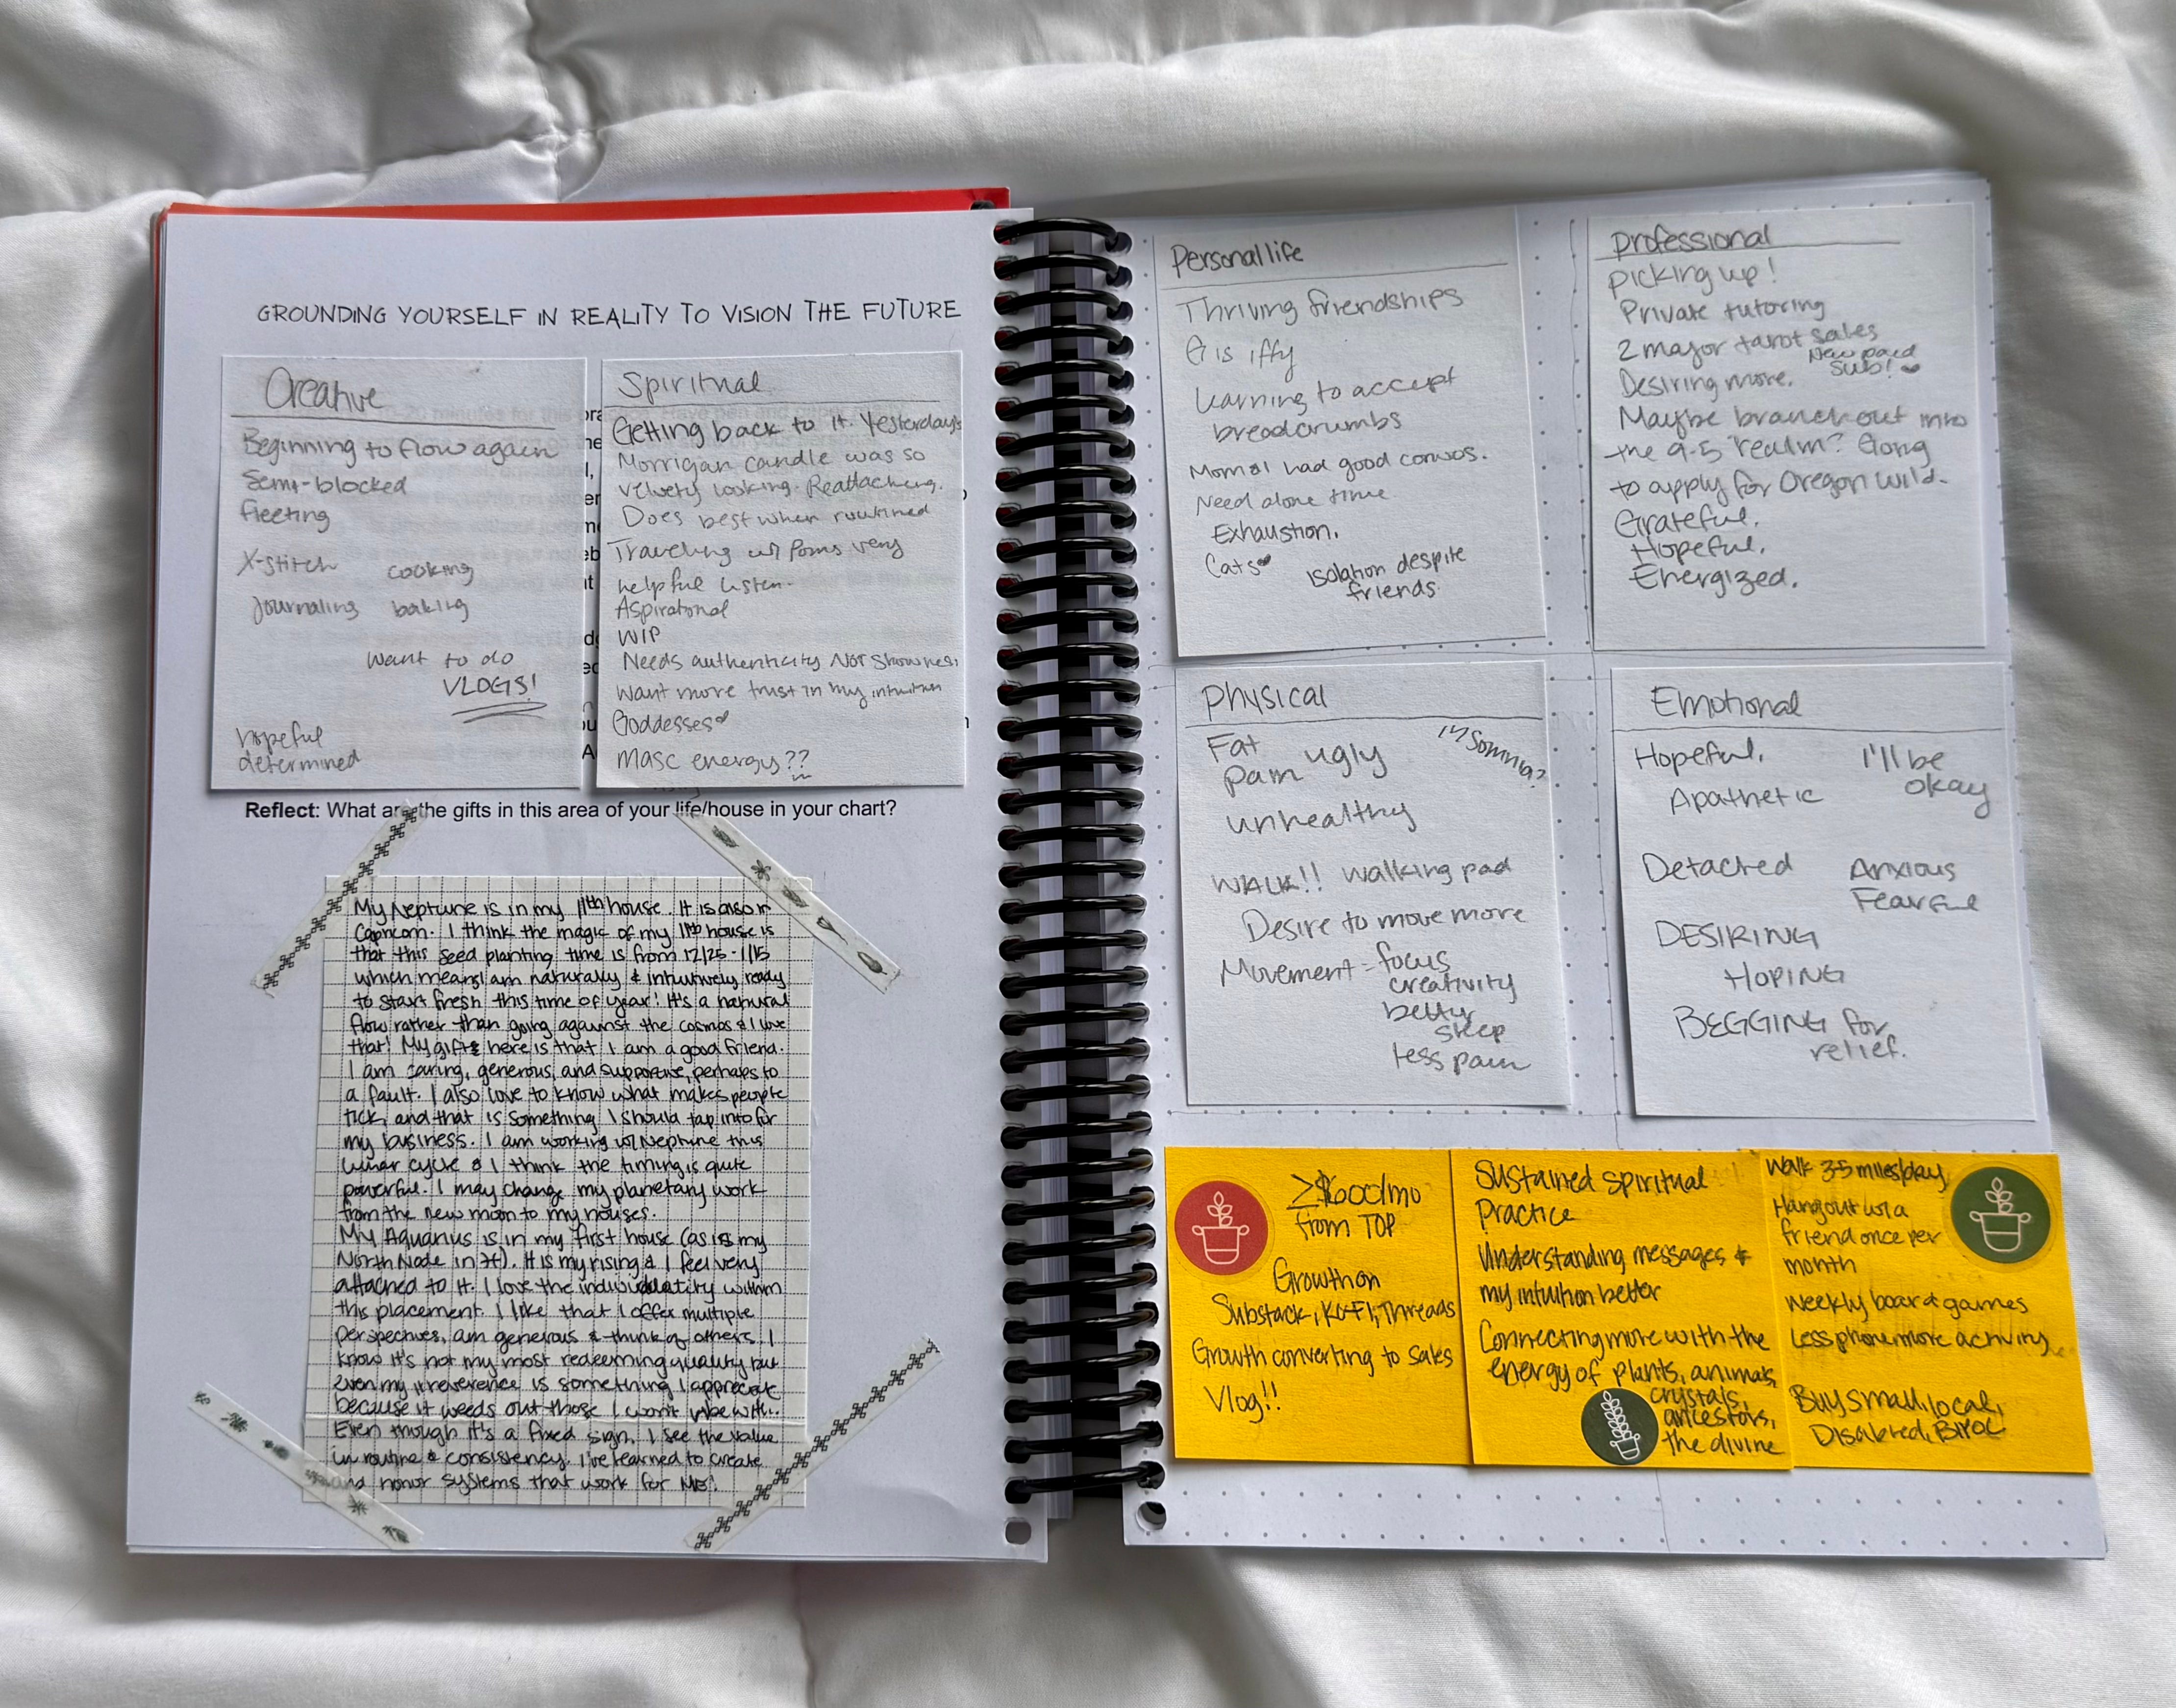 GROUNDING YOURSELF IN REALITY TO VISION THE FUTURE
Creative
Beginning to flow again
Semi-blocked
fleeting
X-stitch cooking
Journaling baking
Want to do
VLOGS!
hopeful
determined
Spiritual
Getting back to it. Yesterday's
Morrigan candle was so
velvety looking. Reattaching.
Does best when routined
Traveling w/ Poms very
helpful listen.
Aspirational
WIP
Needs authenticity NOT showiness
Want more trust in my intuition
Goddesses
masc energy??
Reflect: What are the gifts in this area of your life/house in your chart?
My Neptune is in my 11th house. It is also in
Capricorn. I think the magic of my 11th house is
that this seed planting time is from 12/25-1/15
which means I am naturally & intuitively ready
to start fresh this time of year! It's a natural
flow rather than going against the cosmos & I love
that! My gifts here is that I am a good friend.
I am caring, generous, and supportive, perhaps to
a fault. I also love to know what makes people
tick, and that is something I should tap into for
my business. I am working w/ Neptune this
lunar cycle & I think the timing is quite
powerful. I may change my planetary work
from the new moon to my houses.
My Aquarius is in my first house (as is my
North Node in it). It is my rising & I feel very
attached to it. I love the individuality within
this placement. I like that I offer multiple
perspectives, am generous & think of others. I
know it's not my most redeeming quality but
even my irreverence is something I appreciate
because it weeds out those I won't vibe with.
Even though it's a fixed sign, I see the value
in routine & consistency. I've learned to create
and honor systems that work for ME!
Personal life
Thriving friendships
G is iffy
Learning to accept
breadcrumbs
Mom & I had good convos.
Need alone time
Exhaustion.
Cats
Isolation despite
friends.
Professional
picking up!
Private tutoring
2 major tarot sales
New paid
Sub!
Desiring more.
Maybe branch out into
the 9-5 realm? Going
to apply for Oregon Wild.
Grateful.
Hopeful.
Energized.
Physical
Fat
Pain ugly
insomnia?
unhealthy
WALK!! walking pad
Desire to move more
Movement = focus
creativity
better
sleep
less pain
Emotional
Hopeful. I'll be
okay
Apathetic
Detached Anxious
Fearful
DESIRING
HOPING
BEGGING for
relief.
≥$600/mo
from TOP
Growth on
Substack, KO-FI, Threads
Growth converting to sales
Vlog!!
Sustained Spiritual
Practice
Understanding messages &
my intuition better
Connecting more with the
energy of plants, animals,
crystals,
ancestors,
the divine
Walk 3-5 miles/day
Hangout w/ a
friend once per
month
Weekly board games
Less phone more activity
Buy small, local,
Disabled, BIPOC